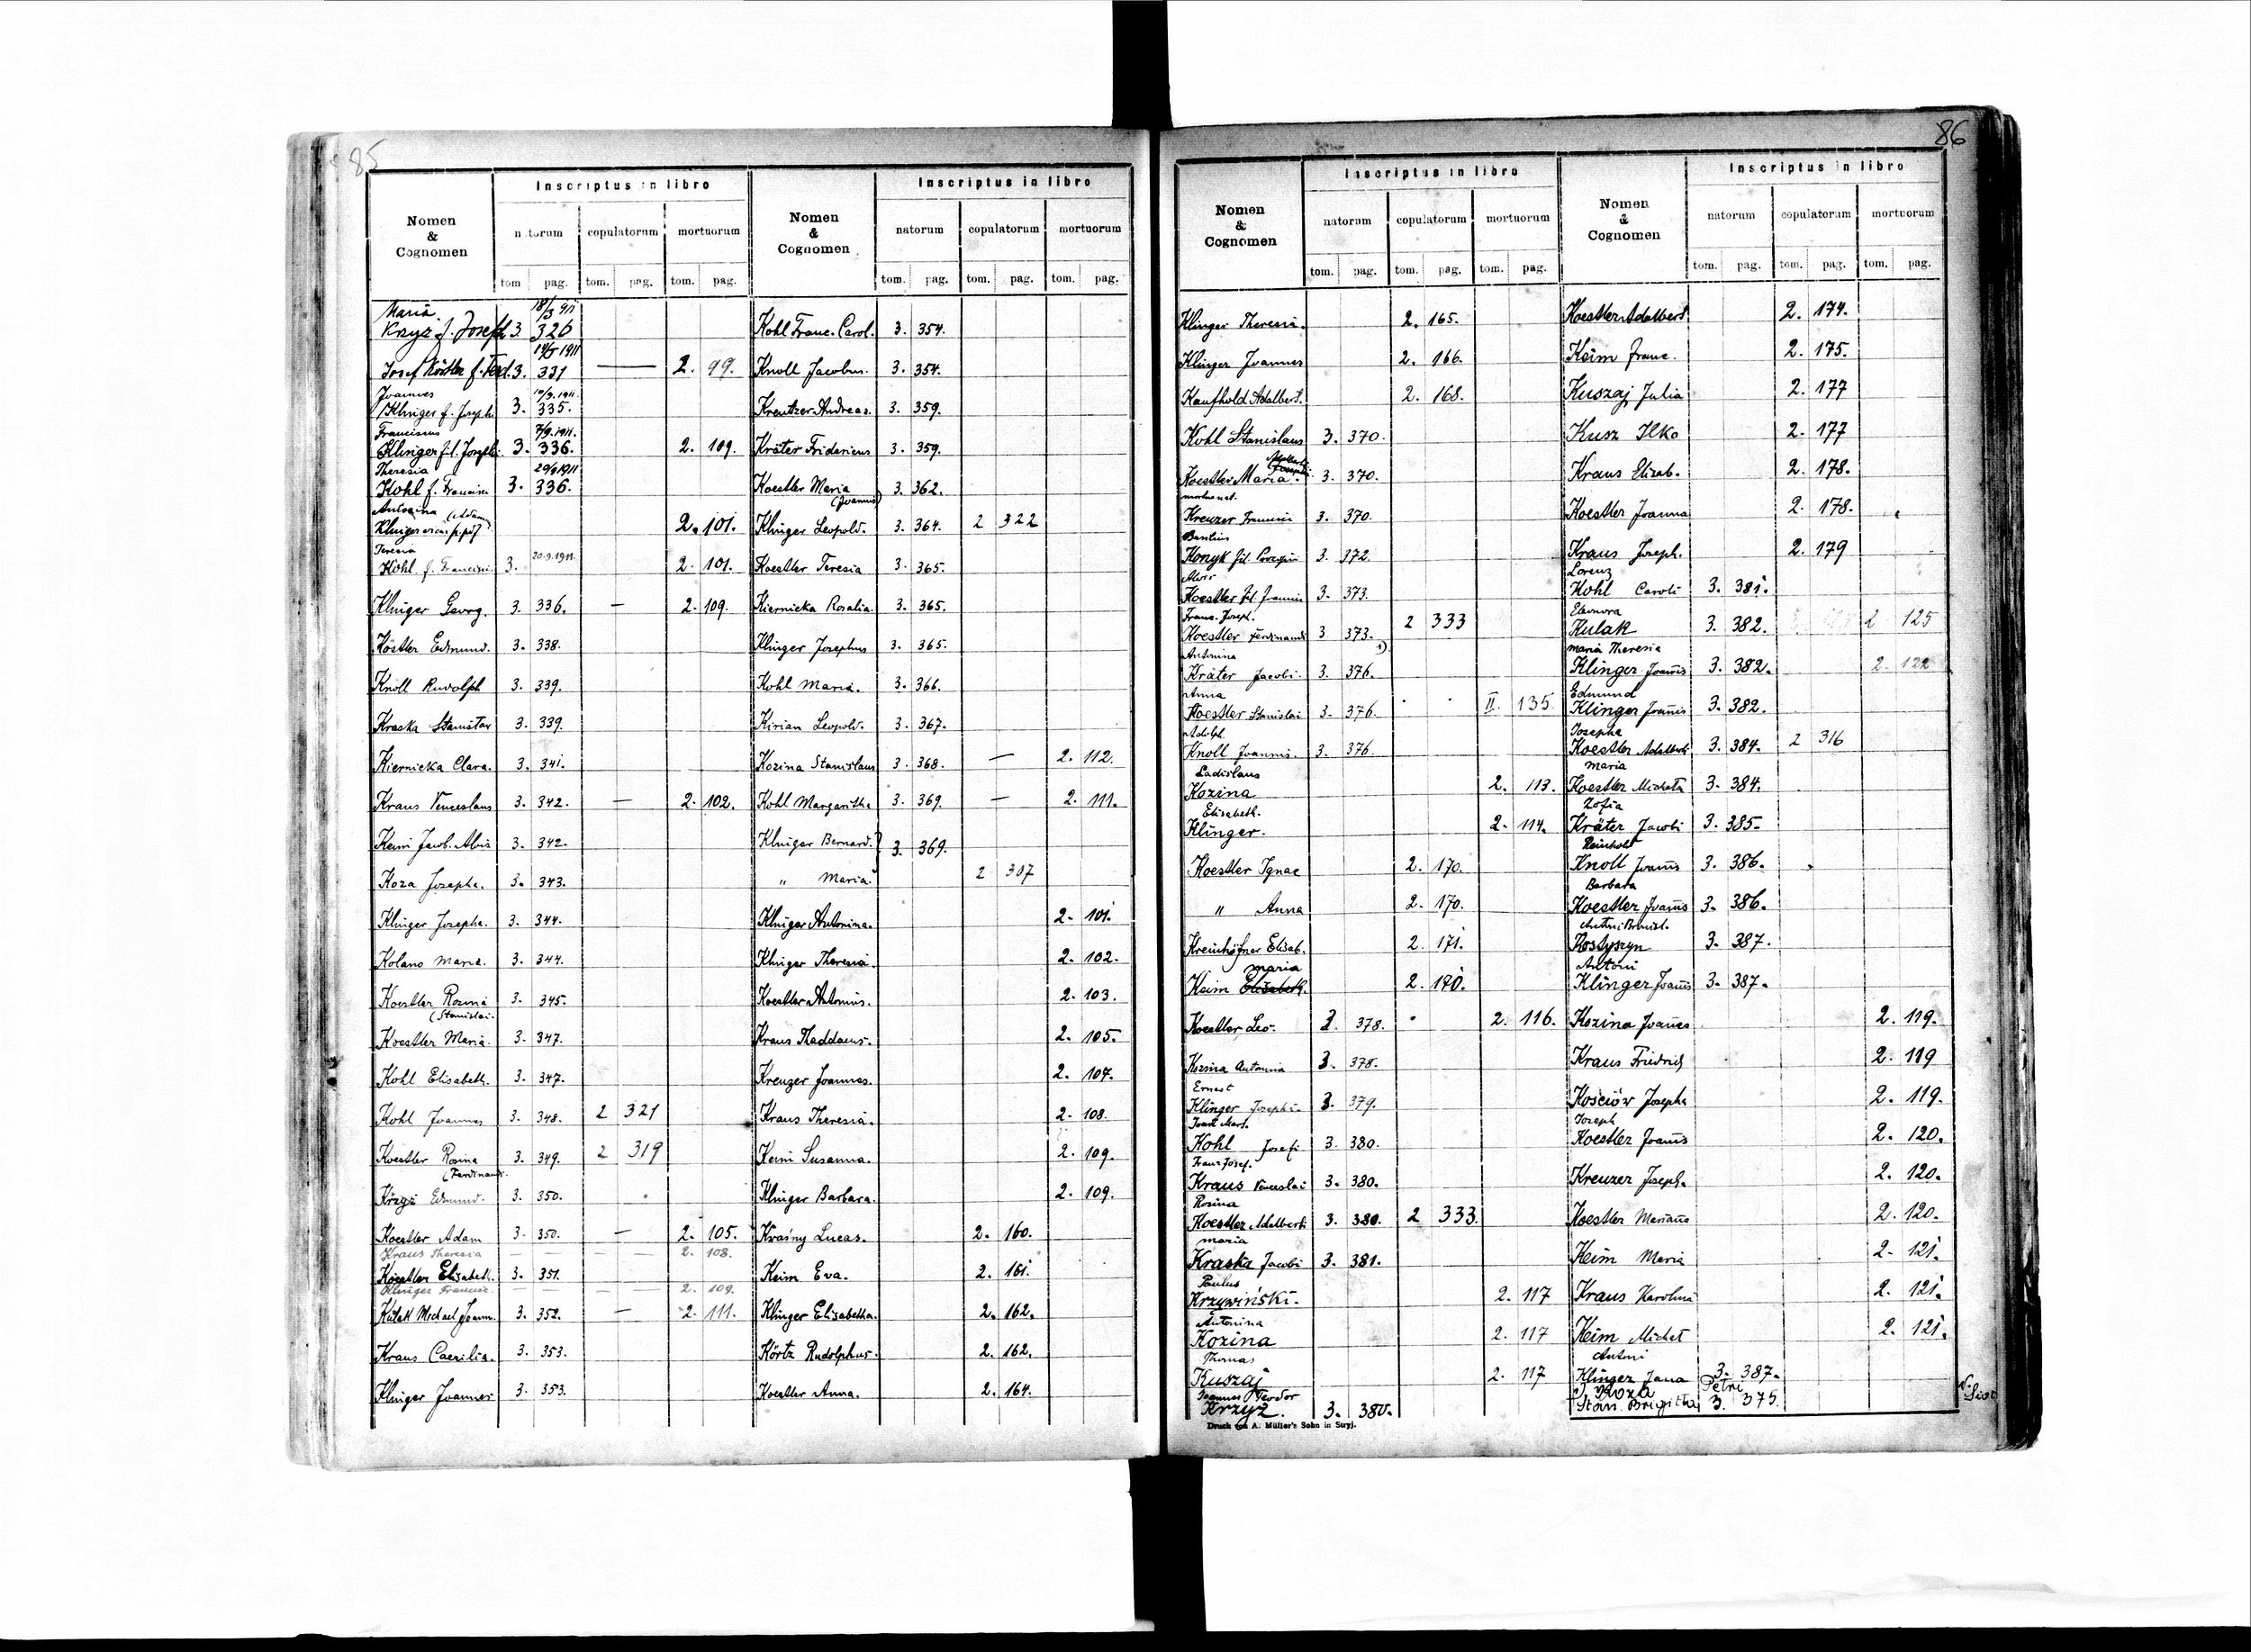 85
Inscriptus in libro
Nomen & Cognomen
natorum copulatorum mortuorum
tom. pag. tom. pag. tom. pag.
Maria 18/3 911
Krzyz f. Joseph 3 326
14/5 1911
Josef Köstler f. Ferd. 3. 331 — 2. 99.
Joannes 10/9. 1911.
Klinger f. Joseph. 3. 335.
Franciscus 7/9. 1911.
Klinger fil. Josephi 3. 336. 2. 109.
Theresia 20/9 1911
Kohl f. Francisci 3. 336.
Antonina (Adami)
Klinger 2. 101.
Teresia
Kohl f. Francisci. 3. 20.9.1911. 2. 101.
Klinger Georg. 3. 336. — 2. 109.
Köstler Edmund. 3. 338.
Knoll Rudolph 3. 339.
Kraska Stanislav 3. 339.
Kiernicka Clara. 3. 341.
Kraus Venceslaus 3. 342. — 2. 102.
Keim Jacob. Alois 3. 342.
Koza Josepha. 3. 343.
Klinger Josepha. 3. 344.
Kolano Maria. 3. 344.
Koestler Rosina 3. 345.
(Stanislai.
Koestler Maria. 3. 347.
Kohl Elisabeth. 3. 347.
Kohl Joannes 3. 348. 2 321
Koestler Rosina 3. 349. 2 319
(Ferdinandi.
Krzyż Edmund. 3. 350.
Koestler Adam 3. 350. — 2. 105.
Kraus Theresia — — — — 2. 108.
Koestler Elisabeth. 3. 351.
Klinger Francisc. — — — — 2. 109.
Kulak Michael Joann. 3. 352. — 2. 111.
Kraus Caecilia. 3. 353.
Klinger Joannes 3. 353.
Inscriptus in libro
Nomen & Cognomen
natorum copulatorum mortuorum
tom. pag. tom. pag. tom. pag.
Kohl Franc. Carol. 3. 354.
Knoll Jacobus. 3. 354.
Kreutzer Andreas. 3. 359.
Kräter Fridericus 3. 359.
Koestler Maria 3. 362.
(Joannis)
Klinger Leopold. 3. 364. 2 322
Koestler Teresia 3. 365.
Kiernicka Rosalia 3. 365.
Klinger Josephus 3. 365.
Kohl Maria. 3. 366.
Kirian Leopold. 3. 367.
Kozina Stanislaus 3. 368. — 2. 112.
Kohl Margaritha 3. 369. — 2. 111.
Klinger Bernard. } 3. 369.
" Maria. 2 307
Klinger Antonina. 2. 101.
Klinger Theresia. 2. 102.
Koestler Antonius. 2. 103.
Kraus Thaddaeus. 2. 105.
Kreuzer Joannes. 2. 107.
Kraus Theresia. 2. 108.
Keim Susanna. 2. 109.
Klinger Barbara. 2. 109.
Kraśny Lucas. 2. 160.
Keim Eva. 2. 161.
Klinger Elisabetha. 2. 162.
Körtz Rudolphus. 2. 162.
Koestler Anna. 2. 164.
86
Inscriptus in libro
Nomen & Cognomen
natorum copulatorum mortuorum
tom. pag. tom. pag. tom. pag.
Klinger Theresia. 2. 165.
Klinger Joannes 2. 166.
Kaufhold Adalbert. 2. 168.
Kohl Stanislaus 3. 370.
Koestler Maria. 3. 370.
Kreuzer Francisci 3. 370.
Basilius
Konyk fil. 3. 372.
Alois
Koestler fil. Joannis 3. 373.
Franc. Joseph.
Koestler Ferdinandi 3 373. 2 333
Antonina
Kräter Jacobi. 3. 376.
Anna
Koestler Stanislai 3. 376. II. 135.
Adolph.
Knoll Joannis. 3. 376.
Ladislaus
Kozina 2. 113.
Elisabeth.
Klinger. 2. 114.
Koestler Ignac 2. 170.
" Anna 2. 170.
Kreinhöfner Elisab. 2. 171.
Maria
Keim Elisabeth. 2. 170.
Koestler Leo. 3. 378. 2. 116.
Kozina Antonina 3. 378.
Ernest
Klinger Josephi. 3. 379.
Kohl Josefi 3. 380.
Franz Josef.
Kraus Venceslai 3. 380.
Rosina
Koestler Adalberti 3. 380. 2 333.
Maria
Kraska Jacobi 3. 381.
Paulus
Krzywiński. 2. 117
Antonina
Kozina 2. 117
Thomas
Kuszaj 2. 117
Joannes Teodor
Krzyż. 3. 380.
Druck von A. Müller's Sohn in Stryj.
Inscriptus in libro
Nomen & Cognomen
natorum copulatorum mortuorum
tom. pag. tom. pag. tom. pag.
Koestler Adalbert 2. 174.
Keim Franc. 2. 175.
Kuszaj Julia 2. 177
Kusz Ilko 2. 177
Kraus Elisab. 2. 178.
Koestler Joanna 2. 178.
Kraus Joseph. 2. 179
Lorenz
Kohl Caroli 3. 381.
Eleonora
Kulak 3. 382. 2 125
Maria Theresia
Klinger Joañis 3. 382. 2. 122
Edmund
Klinger Joañis 3. 382.
Josepha
Koestler Adalberti 3. 384. 2 316
Maria
Koestler Michała 3. 384.
Zofia
Kräter Jacobi 3. 385.
Reinhold
Knoll Joañis 3. 386.
Barbara
Koestler Joañis 3. 386.
Kostyszyn 3. 387.
Antoni
Klinger Joañis 3. 387.
Kozina Joañes 2. 119.
Kraus Friedrich 2. 119
Kościów Josepha 2. 119.
Joseph
Koestler Joañis 2. 120.
Kreuzer Joseph. 2. 120.
Koestler Mariaña 2. 120.
Keim Maria 2. 121.
Kraus Karolina 2. 121.
Keim Michał 2. 121.
Antoni
Klinger Jana 3. 387.
Koza Petri
Stan. Brigitha 3. 375.